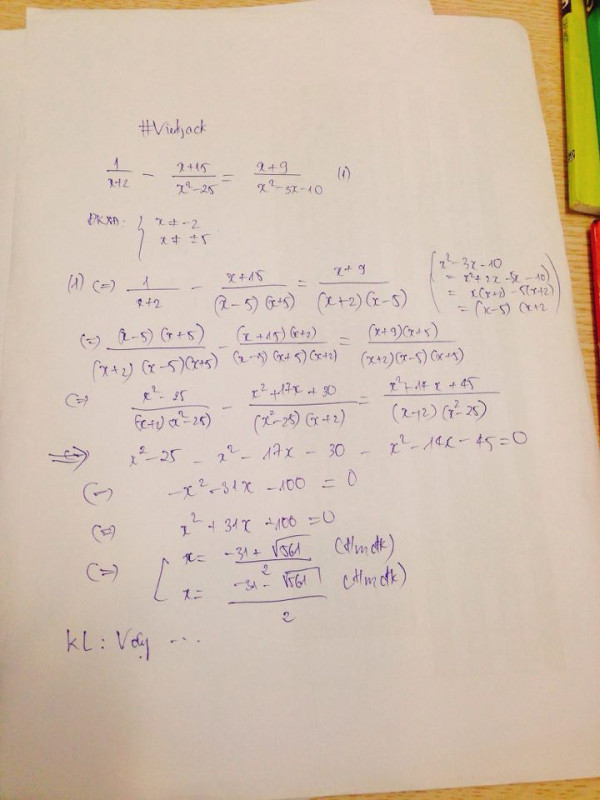 #Vietjack
1/(x+2) - (x+15)/(x²-25) = (x+9)/(x²-3x-10) (1)
ĐKXĐ: { x ≠ -2
x ≠ ±5
(1) (=) 1/(x+2) - (x+15)/((x-5)(x+5)) = (x+9)/((x+2)(x-5))
( x²-3x-10
= x²+2x-5x-10)
= x(x+2) -5(x+2)
= (x-5) (x+2 )
(=) ((x-5)(x+5))/((x+2)(x-5)(x+5)) - ((x+15)(x+2))/((x-5)(x+5)(x+2)) = ((x+9)(x+5))/((x+2)(x-5)(x+5))
(=) (x²-25)/((x+2)(x²-25)) - (x²+17x+30)/((x²-25)(x+2)) = (x²+14x+45)/((x+2)(x²-25))
=> x²-25 - x²-17x-30 - x²-14x-45=0
(=) -x²-31x-100 = 0
(=) x²+31x+100=0
(=) [ x= (-31+√561)/2 (t/m đk)
x= (-31-√561)/2 (t/m đk)
KL: Vậy ...